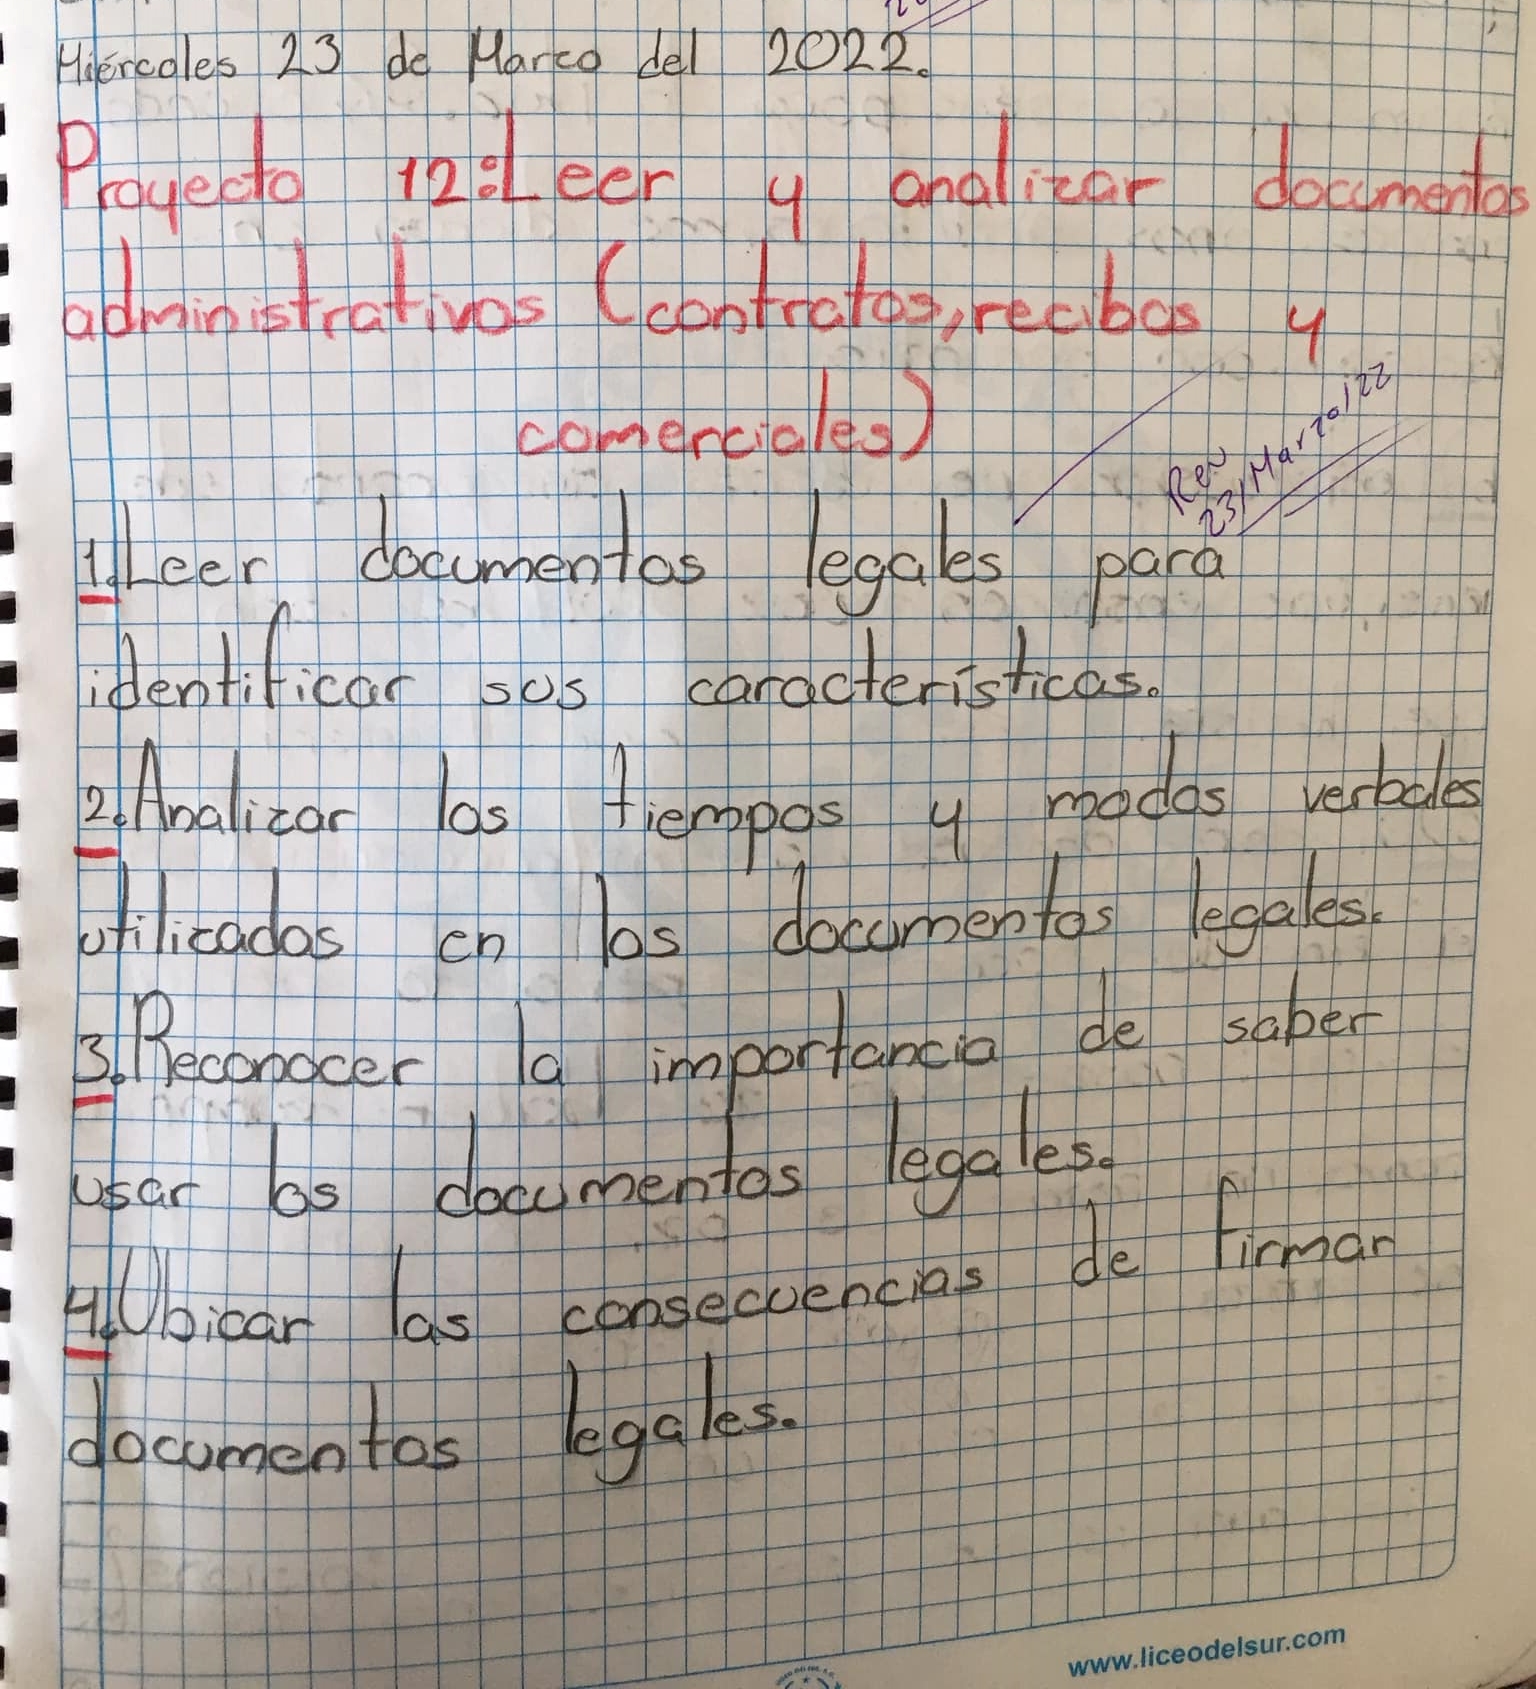 Miércoles 23 de Marzo del 2022.
Proyecto 12:Leer y analizar documentos
administrativos (contratos, recibos y
comerciales)
Rev
23/Marzo/22
1. Leer documentos legales para
identificar sus características.
2. Analizar los tiempos y modos verbales
utilizados en los documentos legales.
3. Reconocer la importancia de saber
usar los documentos legales.
4. Ubicar las consecuencias de firmar
documentos legales.
www.liceodelsur.com